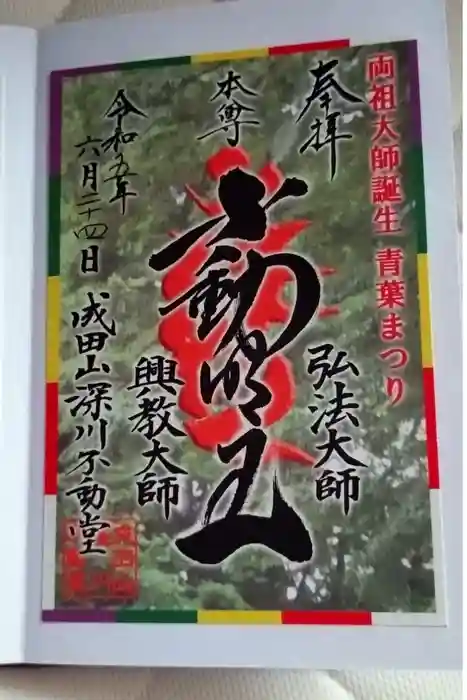 両祖大師誕生 青葉まつり
奉拝
本尊
不動明王
弘法大師
興教大師
令和五年
六月二十四日
成田山深川不動堂